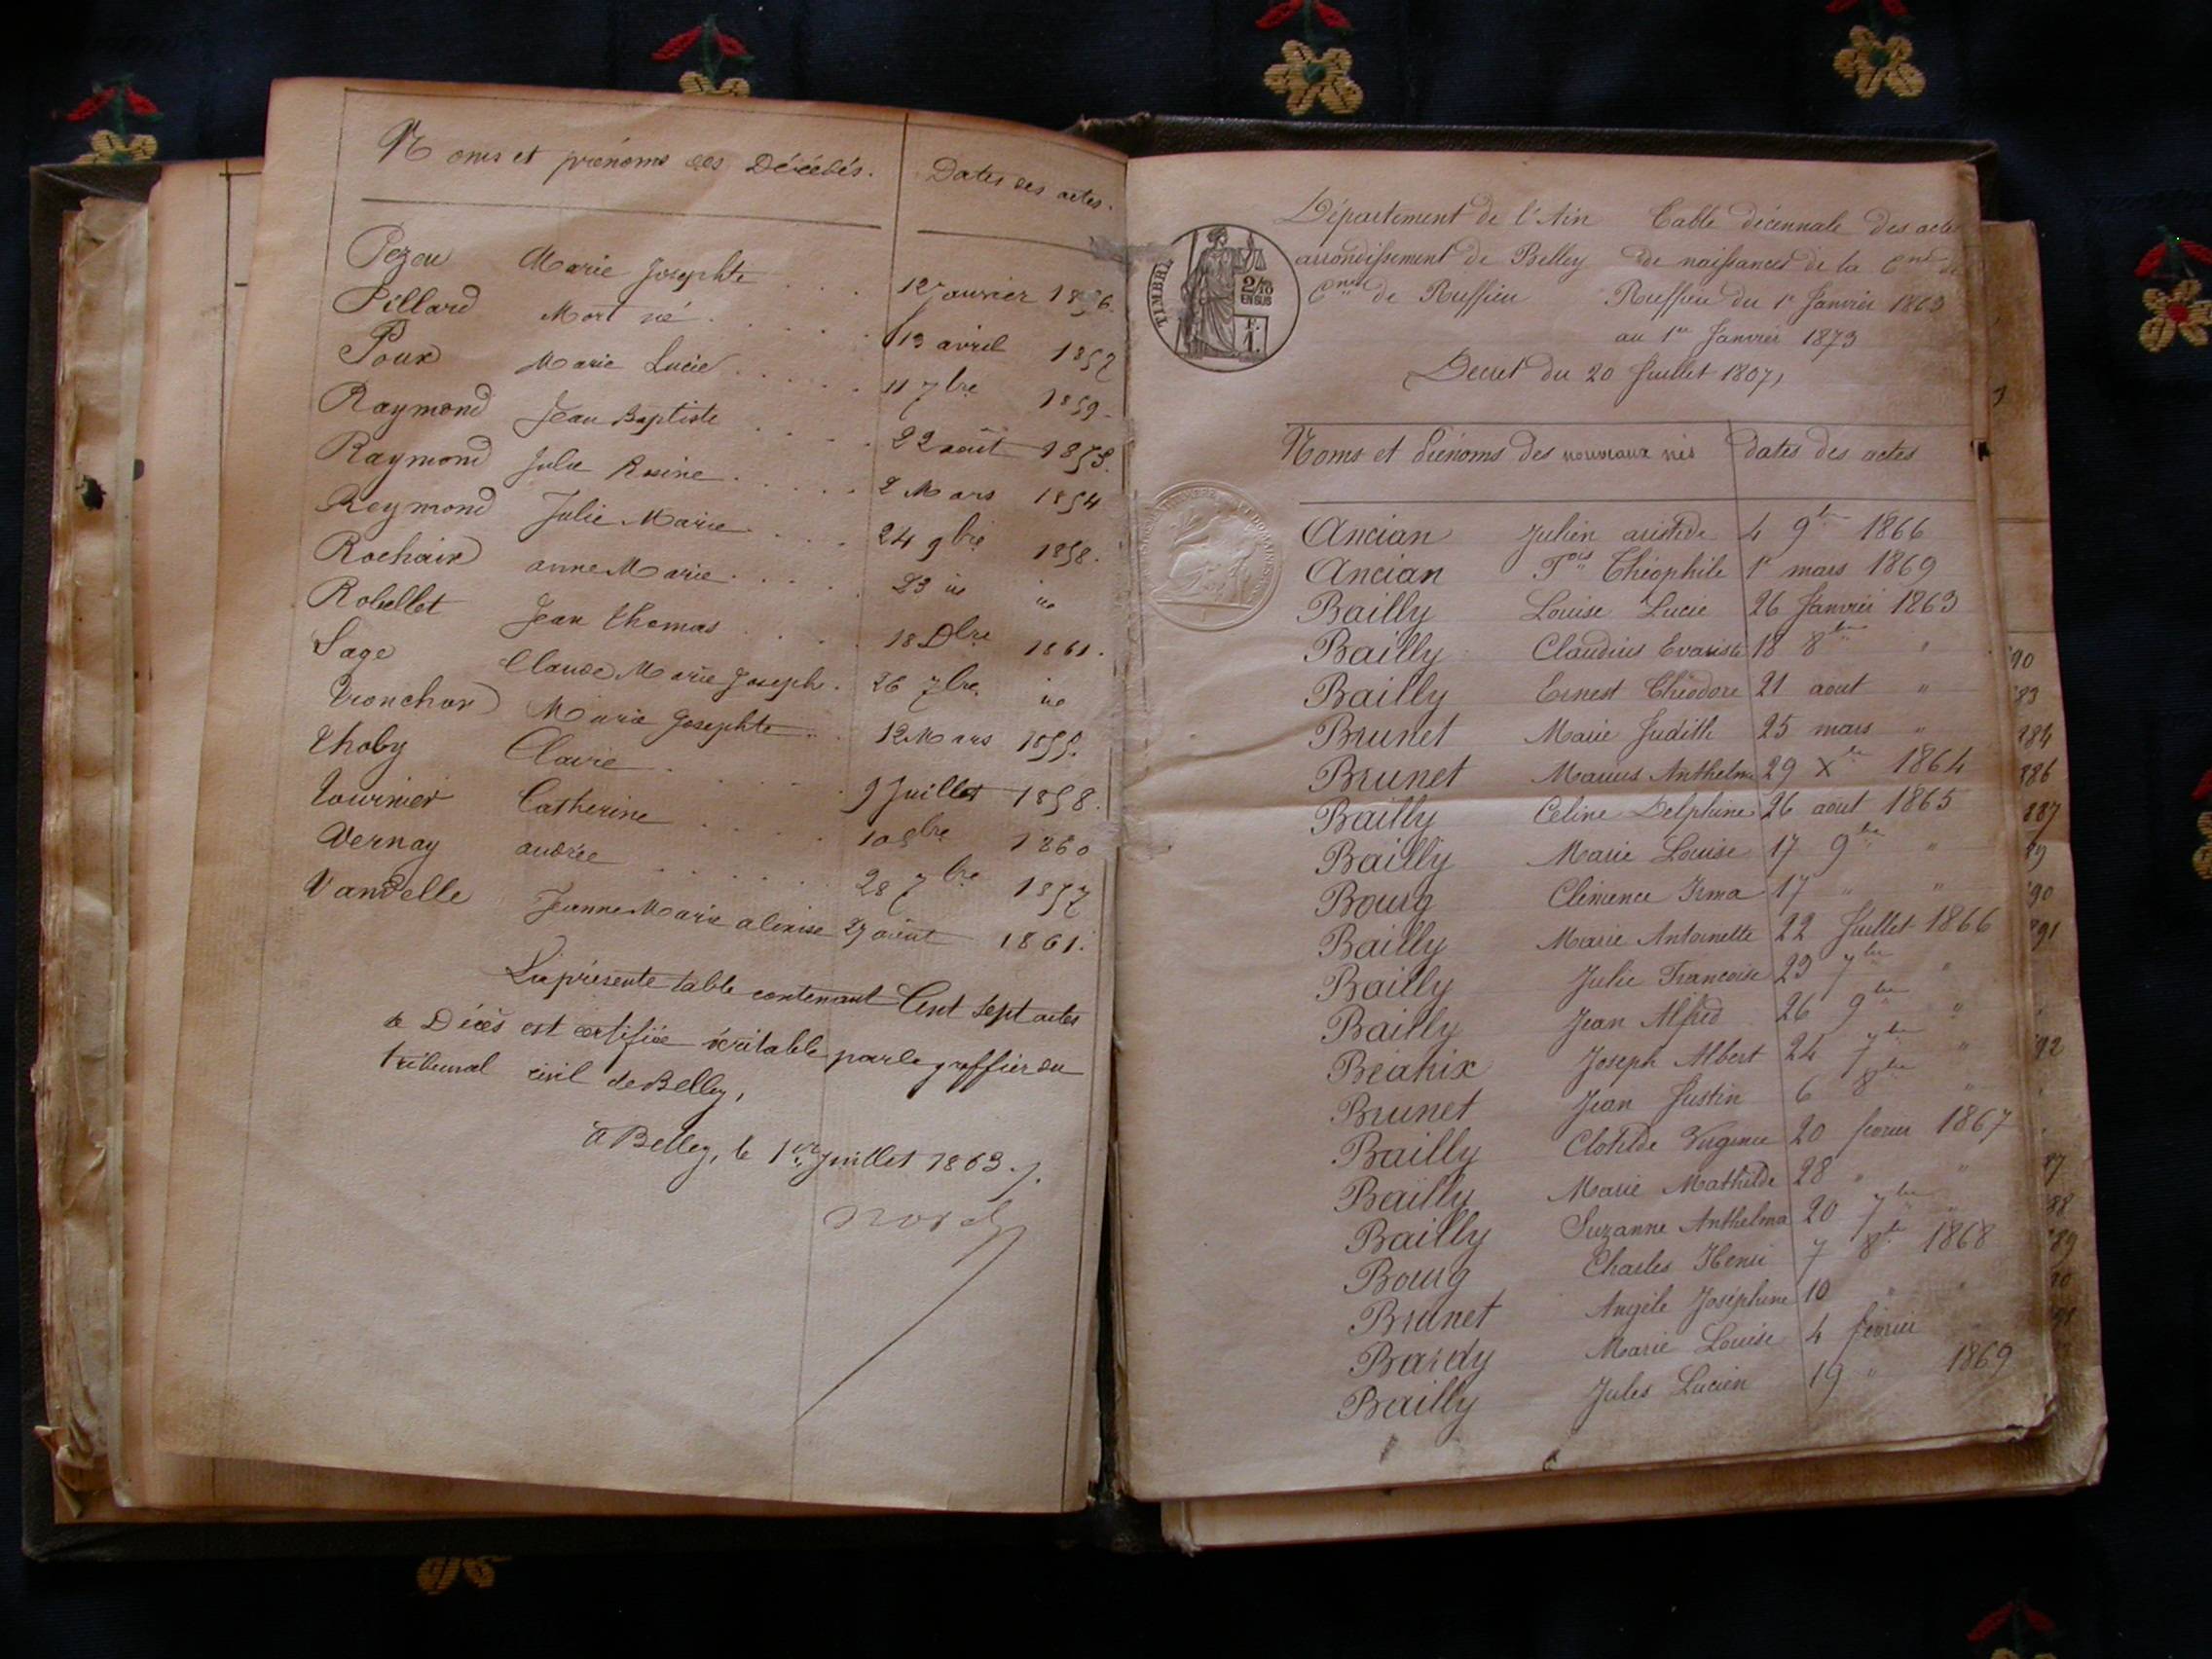 Noms et prénoms des Décédés. Dates des actes.
Pezou Marie Josephte 12 Janvier 1856.
Pillard Mort né 13 avril 1857
Poux Marie Lucie 11 7bre 1859.
Raymond Jean Baptiste 22 août 1853.
Raymond Julie Rosine 2 Mars 1854
Reymond Julie Marie 24 9bre 1858.
Rochaix anne Marie 23 id id
Robellet Jean Thomas 18 Dbre 1861.
Sage Claude Marie Joseph. 26 7bre id
Tronchon Marie Josephte 12 Mars 1855.
Thoby Claire 9 Juillet 1858.
Tournier Catherine 10 1860
Vernay andrée 28 7bre 1857
Vandelle Jeanne Marie 27 août 1861.
La présente table contenant Cent Sept actes
de Décès est certifiée véritable par le greffier du
tribunal civil de Belley,
à Belley, le 1er Juillet 1863.
TIMBRE
2/10
EN SUS
Département de l'Ain Table décennale des acte
arrondissement de Belley de naissances de la Cne de
Cne de Ruffieu Ruffieu du 1er Janvier 1863
au 1er Janvier 1873
Décret du 20 Juillet 1807,
Noms et Prénoms des nouveaux nés dates des actes
Ancian Julien aristide 4 9bre 1866
Ancian Fois Théophile 1er mars 1869
Bailly Louise Lucie 26 Janvier 1863
Bailly Claudius Evariste 18 8bre "
Bailly Ernest Théodore 21 aout "
Brunet Marie Judith 25 mars "
Brunet Marius Anthelme 29 Xbre 1864
Bailly Celine Delphine 26 aout 1865
Bailly Marie Louise 17 9bre "
Bourg Clémence Irma 17 " "
Bailly Marie Antoinette 22 Juillet 1866
Bailly Julie Françoise 23 7bre "
Bailly Jean Alfred 26 9bre "
Béatrix Joseph Albert 24 7bre "
Brunet Jean Justin 6 8bre "
Bailly Clotilde Virginie 20 février 1867
Bailly Marie Mathilde 28 " "
Bailly Suzanne Anthelma 20 7bre "
Bourg Charles Henri 7 8bre 1868
Brunet Angèle Joséphine 10 " "
Bardy Marie Louise 4 février
Bailly Jules Lucien 19 " 1869